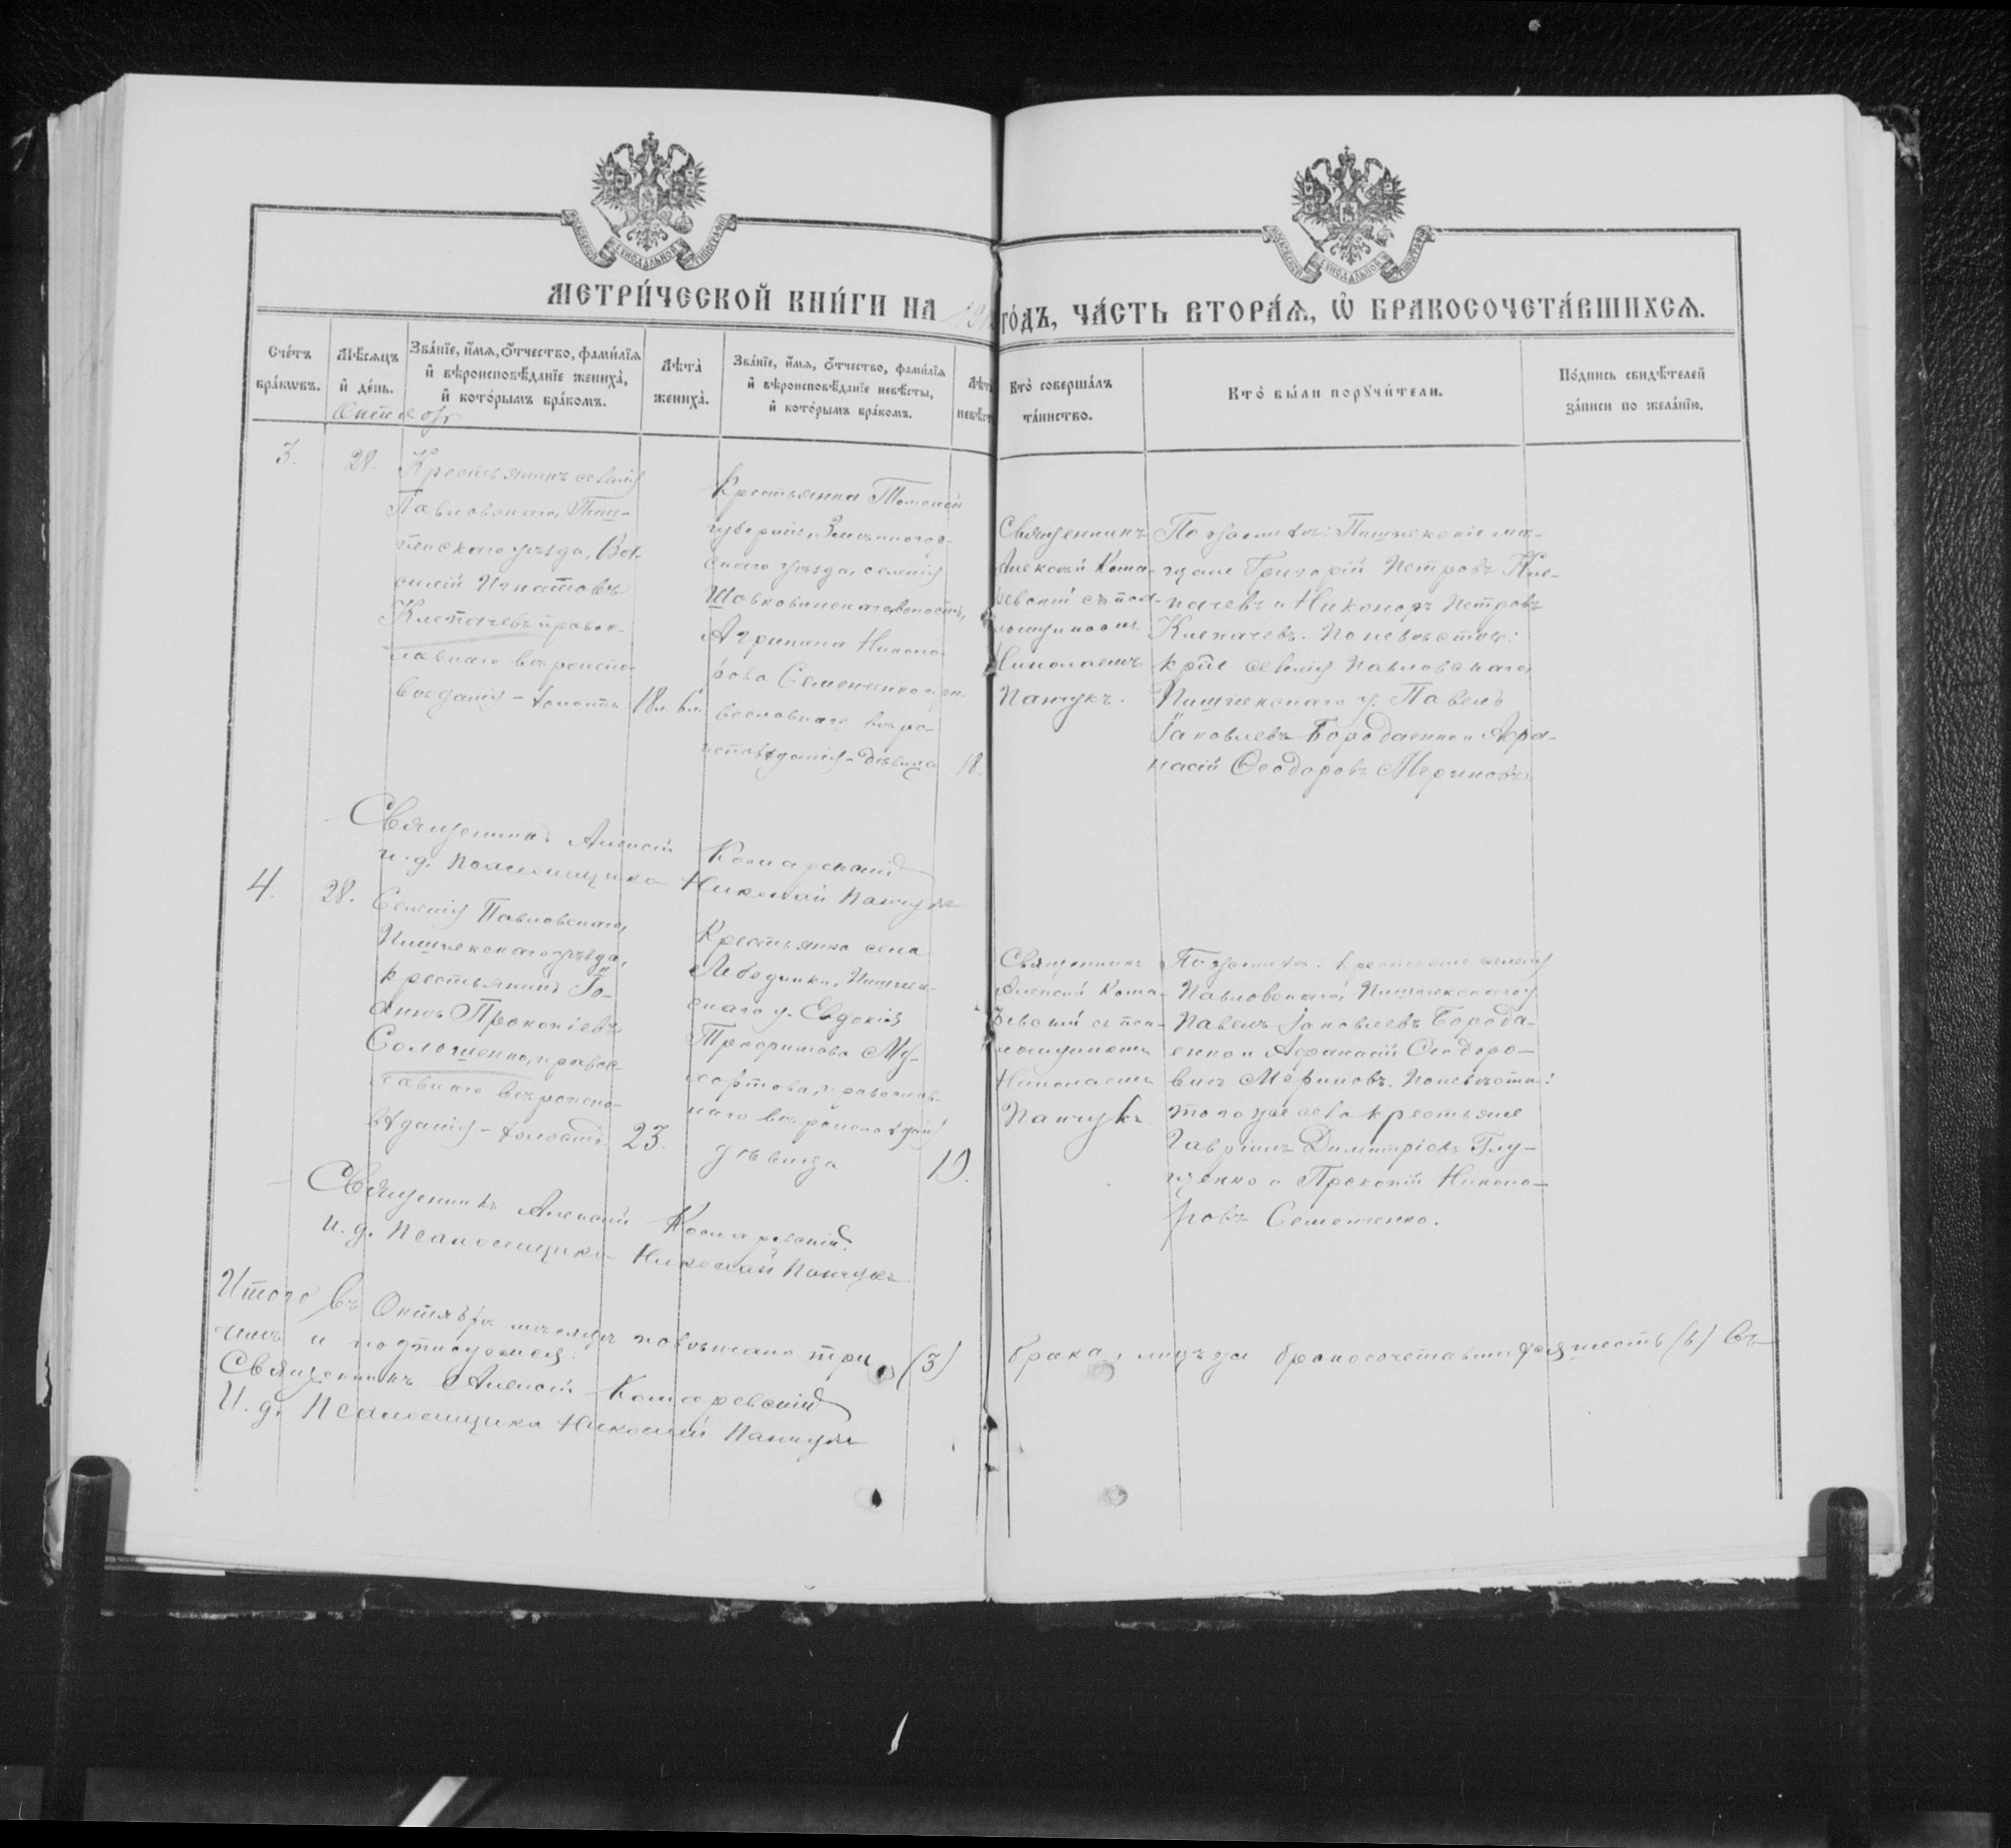 МЕТРИ́ЧЕСКОЙ КНИ́ГИ НА 191 ГО́ДЪ, ЧА́СТЬ ВТОРА́Я, Ѡ БРАКОСОЧЕТА́ВШИХСЯ.
Сче́тъ бра́кѡвъ.
Мѣ́сяцъ и де́нь.
Зва́нїе, и́мя, о́тчество, фами́лїя и вѣроисповѣ́данїе жениха̀, и кото́рымъ бра́комъ.
Лѣта̀ жениха̀.
Зва́нїе, и́мя, о́тчество, фами́лїя и вѣроисповѣ́данїе невѣ́сты, и кото́рымъ бра́комъ.
Лѣта невѣст
Кто̀ соверша́лъ та́инство.
Кто̀ бы́ли порꙋчи́тели.
По́дпись свидѣ́телей за́писи по жела́нїю.
Октябрь
3.
28.
Крестьянинъ селенія
Павловскаго, Пиш-
пекскаго уѣзда, Ва-
силій Игнатовъ
Клепачевъ православ-
наго вѣроиспо-
вѣданія - холостъ
18 л. 6 м.
Крестьянка Томской
губерніи, Змѣиногор-
скаго уѣзда, селенія
волости,
Агрипина Никоно-
рова Семененко пра-
вославнаго вѣро-
исповѣданія - дѣвица
18.
Священникъ
Алексій Кома-
ревскій съ псал-
омщикомъ
Николаемъ
Панчукъ.
По женихѣ: Пишпекскіе мѣ-
щане Григорій Петровъ Кле-
пачевъ и Никоноръ Петровъ
Клепачевъ. По невѣстѣ:
кр͠не селенія Павловскаго,
Пишпекскаго у. Павелъ
Іаковлевъ Бородаенко и Аѳа-
насій Ѳеодоровъ Мериновъ
Священникъ Алексій Комаревскій
и. д. псаломщика Николай Панчукъ
4.
28.
Селенія Павловскаго,
Пишпекскаго уѣзда,
крестьянинъ Іо-
аннъ Прокопіевъ
Солошенко, право-
славнаго вѣроиспо-
вѣданія - холостъ.
23.
Крестьянка села
Лебединки, Пишпек-
скаго у. Евдокія
Трофимова Му-
хортова, православ-
наго вѣроисповѣданія
дѣвица
19.
Священникъ
Алексій Кома-
ревскій съ пса-
ломщикомъ
Николаемъ
Панчукъ.
По женихѣ: крестьяне селенія
Павловскаго, Пишпекскаго у
Павелъ Іаковлевъ Борода-
енко и Аѳанасій Ѳеодоро-
вичъ Мериновъ. По невѣстѣ:
того же села крестьяне
Гавріилъ Димитріевъ Глу-
щенко и Прокопій Никоно-
ровъ Семененко.
Священникъ Алексій Комаревскій.
И. д. Псаломщика Николай Панчукъ
Итого въ Октябрѣ мѣсяцѣ повѣнчано три (3) брака, лицъ же бракосочетавшихся шесть (6) Въ
чемъ и подписуемся:
Священникъ Алексій Комаревскій
И. д. Псаломщика Николай Панчукъ